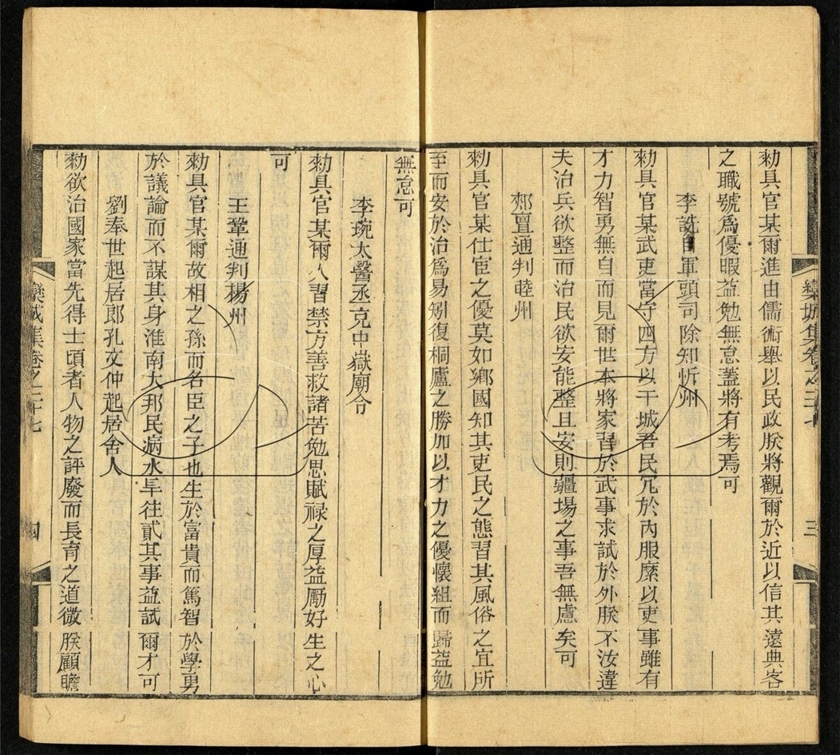 欒城集卷之二十七
三
勑具官某爾進由儒術舉以民政朕將觀爾於近以信其遠典客
之職號爲優暇益勉無怠蓋將有考焉可
李詵自軍頭司除知忻州
勑具官某武吏當守四方以干城吾民冗於內服縻以吏事雖有
才力智勇無自而見爾世本將家習於武事求試於外朕不汝違
夫治兵欲整而治民欲安能整且安則疆場之事吾無慮矣可
郟亶通判睦州
勑具官某仕宦之優莫如鄉國知其吏民之態習其風俗之宜所
至而安於治爲易矧復桐廬之勝加以才力之優懷組而歸益勉
無怠可
李琬太醫丞充中嶽廟令
勑具官某爾入習禁方善救諸苦勉思賦祿之厚益勵好生之心
可
王鞏通判楊州
勑具官某爾故相之孫而名臣之子也生於富貴而篤智於學勇
於議論而不謀其身淮南大邦民病水旱往貳其事益試爾才可
劉奉世起居郎孔文仲起居舍人
勑欲治國家當先得士頃者人物之評廢而長育之道微朕顧瞻
欒城集卷之二十七
四